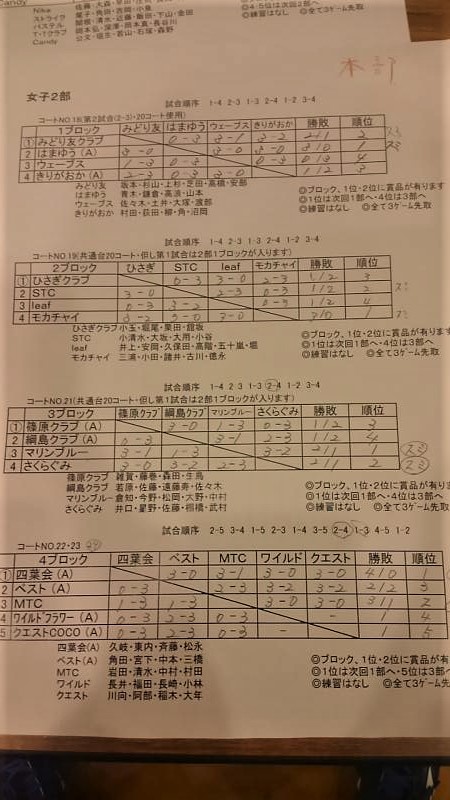 Nike 葉子・角田・吉岡・小泉
ストライク 関根・清水・近藤・飯田・下山・金田
パステル 岡本弘・深澤・岡本直・長谷川
T・1クラブ 公文・垣生・若山・石塚・森野
Candy
◎4・5位は次回2部へ
◎練習はなし ◎全て3ゲーム先取
本部
女子2部
試合順序 1-4 2-3 1-3 2-4 1-2 3-4
コートNO.18(第2試合(2-3)・20コート使用)
1ブロック みどり友 はまゆう ウェーブス きりがおか 勝敗 順位
① みどり友クラブ 0-3 3-1 3-2 2/1 2
2 はまゆう(A) 3-0 3-0 3-0 3/0 1
3 ウェーブス 1-3 0-3 0-3 0/3 4
4 きりがおか(A) 2-3 0-3 3-0 1/2 3
みどり友 坂本・杉山・上杉・芝田・高橋・安部
はまゆう 青木・鎌倉・高浪・山本
ウェーブス 佐々木・土井・大塚・渡部
きりがおか 村田・荻田・柳・角・沼岡
◎ブロック、1位・2位に賞品が有ります
◎1位は次回1部へ・4位は3部へ
◎練習はなし ◎全て3ゲーム先取
試合順序 1-4 2-3 1-3 2-4 1-2 3-4
コートNO.19(共通台20コート・但し第1試合は2部1ブロックが入ります)
2ブロック ひさぎ STC leaf モカチャイ 勝敗 順位
① ひさぎクラブ 0-3 3-0 1/2 3
2 STC 3-0 2-3 0-3 1/2 2
3 leaf 0-3 3-2 0-3 1/2 4
4 モカチャイ 3-0 3-0 3/0 1
ひさぎクラブ 小玉・堀尾・栗田・舘坂
STC 小清水・大坂・大用・小谷
leaf 井上・安岡・久保田・高階・五十嵐・堀
モカチャイ 三浦・小田・諸井・古川・徳永
◎ブロック、1位・2位に賞品が有ります
◎1位は次回1部へ・4位は3部へ
◎練習はなし ◎全て3ゲーム先取
試合順序 1-4 2-3 1-3 2-4 1-2 3-4
コートNO.21(共通台20コート・但し第1試合は2部1ブロックが入ります)
3ブロック 篠原クラブ 綱島クラブ マリンブルー さくらぐみ 勝敗 順位
① 篠原クラブ(A) 3-0 1-3 0-3 1/2 3
2 綱島クラブ(A) 0-3 3-1 2-3 1/2 4
3 マリンブルー 3-1 1-3 3-2 2/1 1
4 さくらぐみ 3-0 3-2 2-3 2/1 2
篠原クラブ 雑賀・藤巻・森田・生島
綱島クラブ 若原・佐藤・遠藤寿・佐々木
マリンブルー 倉知・今野・松岡・大野・中村
さくらぐみ 井口・星野・佐藤・棚橋・武村
◎ブロック、1位・2位に賞品が有ります
◎1位は次回1部へ・4位は3部へ
◎練習はなし ◎全て3ゲーム先取
試合順序 2-5 3-4 1-5 2-3 1-4 3-5 2-4 1-3 4-5 1-2
コートNO.22・23
4ブロック 四葉会 ベスト MTC ワイルド クエスト 勝敗 順位
① 四葉会(A) 3-0 3-1 3-0 3-0 4/0 1
2 ベスト(A) 0-3 3-1 3-2 3-2 3
3 MTC 1-3 1-3 3-0 3-0 2
4 ワイルドフラワー(A) 0-3 2-3 0-3 - 4
5 クエストCOCO(A) 0-3 2-3 0-3 - 5
四葉会(A) 久岐・東内・斉藤・松永
ベスト(A) 角田・宮下・中本・三橋
MTC 岩田・清水・中村・村田
ワイルド 長井・福田・長崎・小林
クエスト 川向・阿部・稲木・大年
◎ブロック、1位・2位に賞品が有
◎1位は次回1部へ・5位は3部へ
◎練習はなし ◎全て3ゲーム先